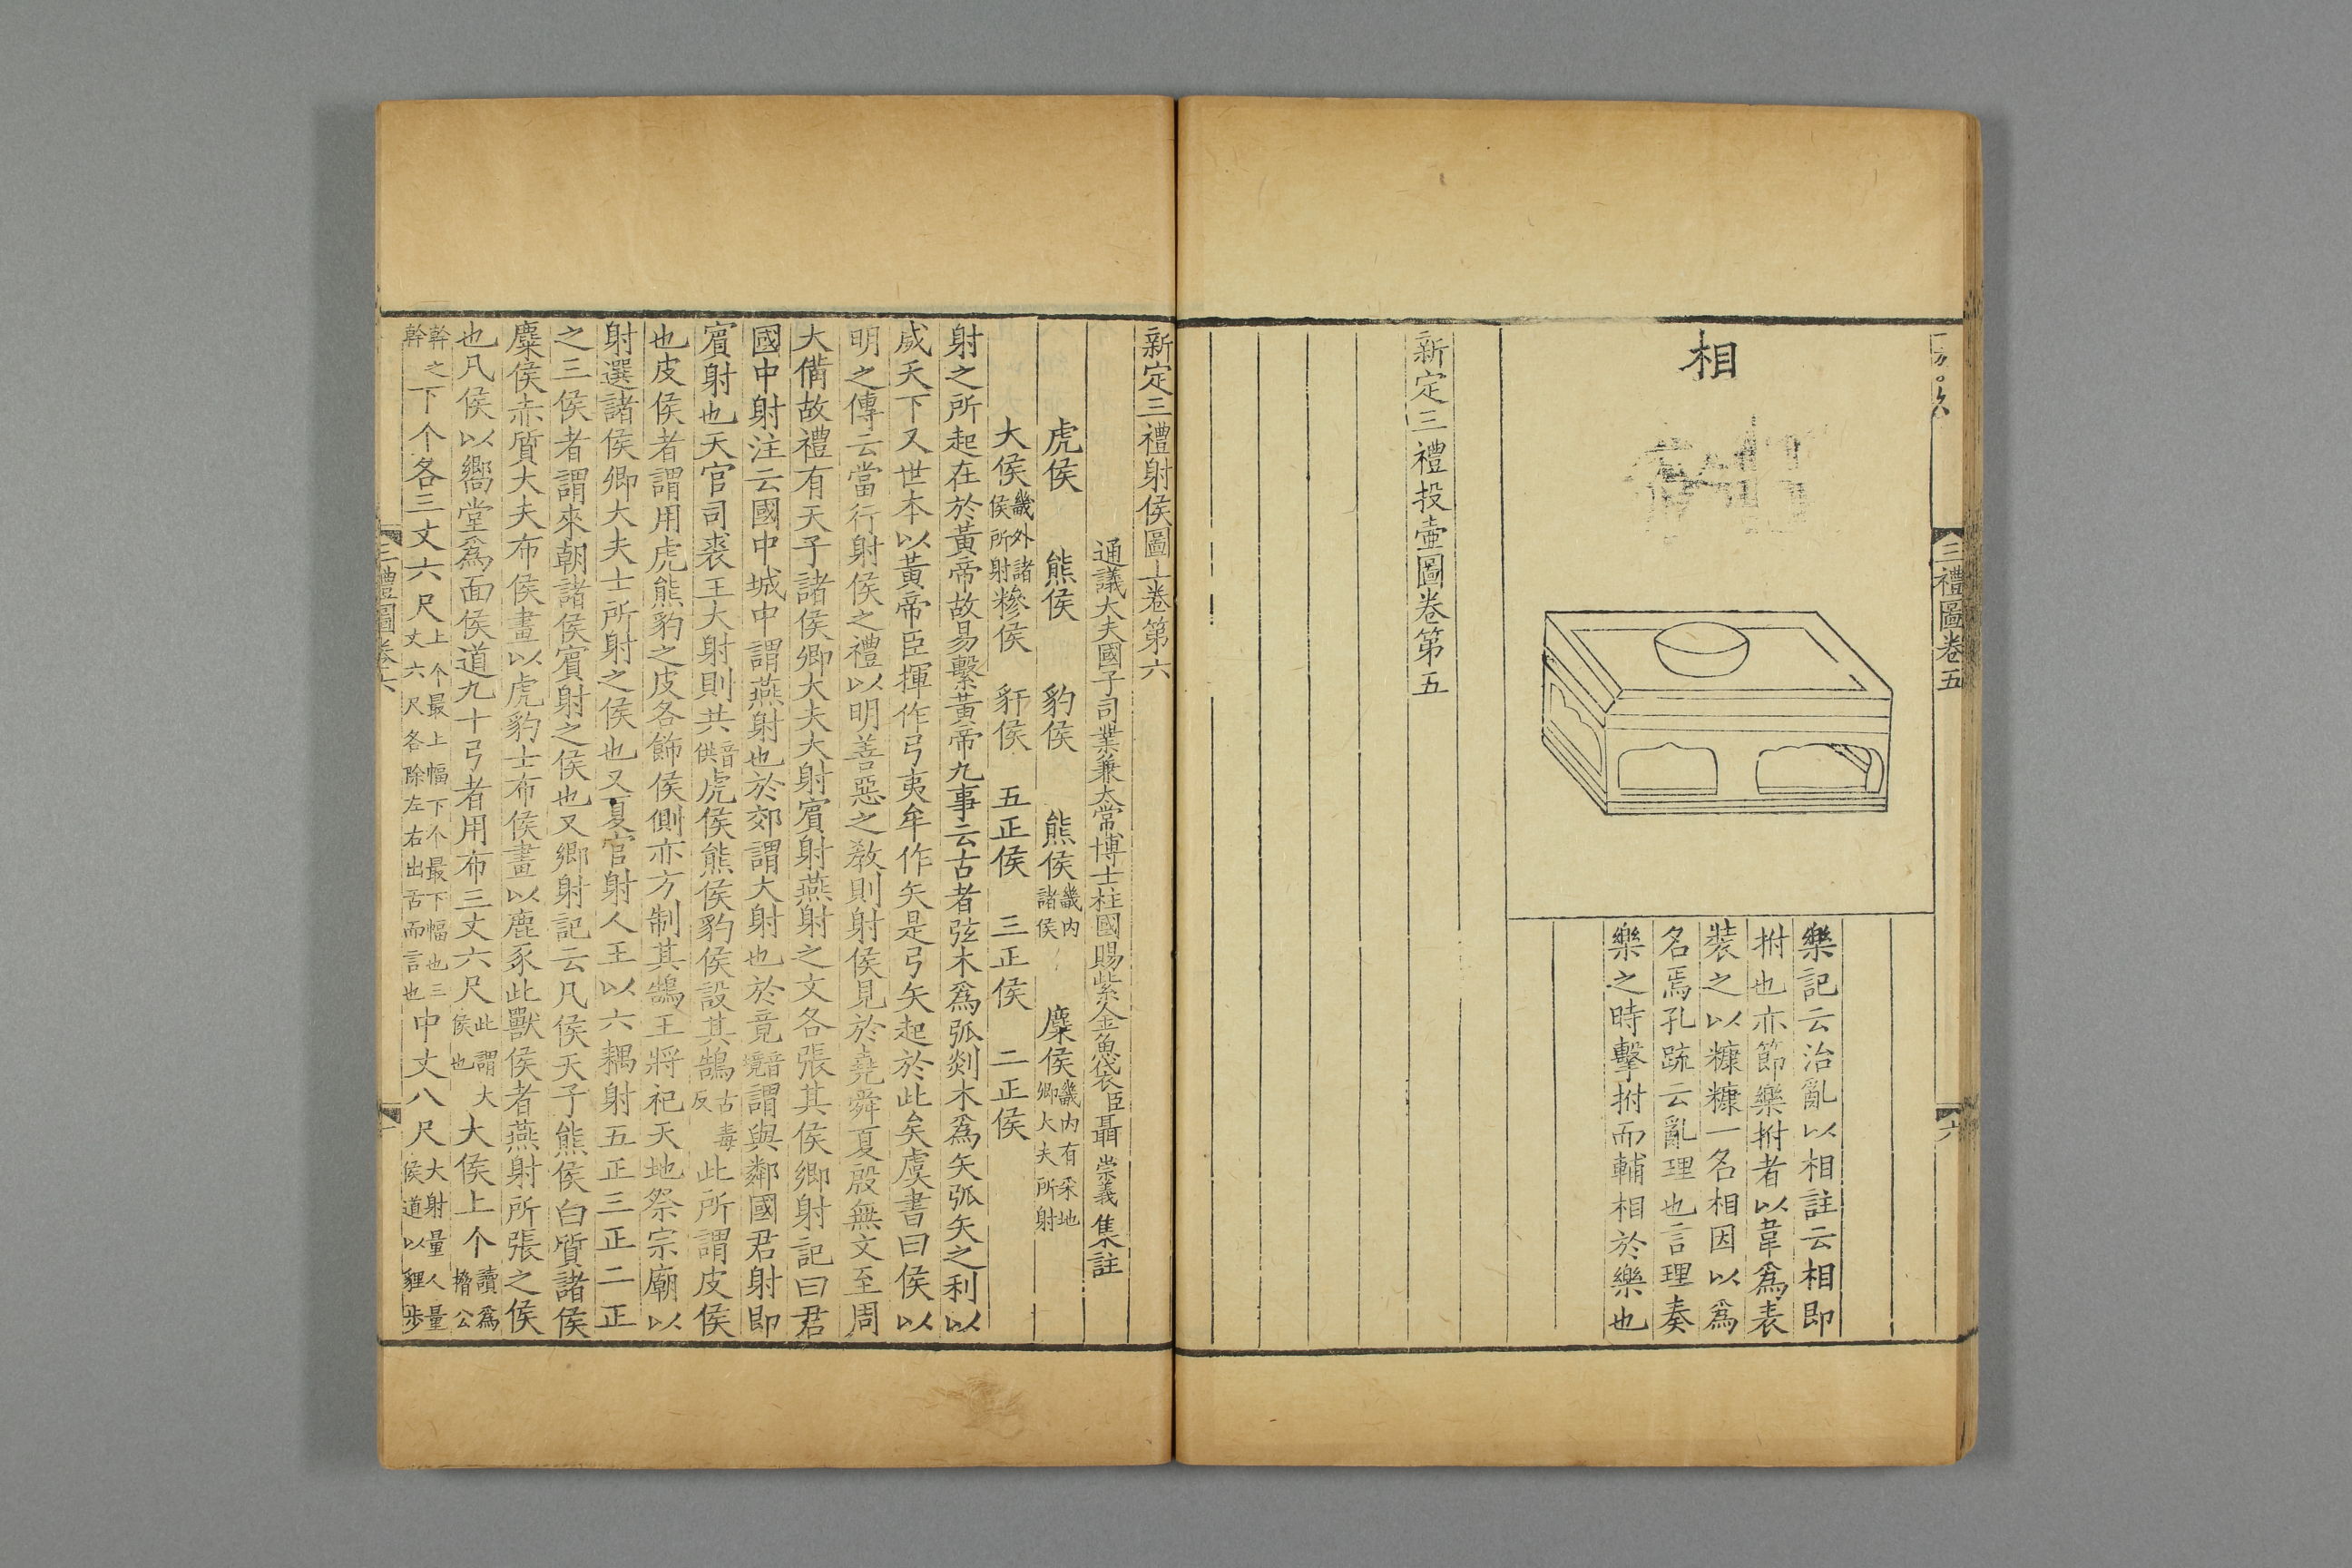 三禮圖卷五
六
相
樂記云治亂以相註云相即
拊也亦節樂拊者以韋爲表
裝之以糠糠一名相因以爲
名焉孔䟽云亂理也言理奏
樂之時擊拊而輔相於樂也
新定三禮投壷圖卷第五
新定三禮射侯圖上卷第六
通議大夫國子司業兼太常博士柱國賜紫金魚袋臣聶崇義集註
虎侯 熊侯 豹侯 熊侯畿内諸侯 麋侯畿内有采地卿大夫所射
大侯畿外諸侯所射糝侯 豻侯 五正侯 三正侯 二正侯
射之所起在於黃帝故易繫黃帝九事云古者弦木爲弧剡木爲矢弧矢之利以
威天下又世本以黃帝臣揮作弓夷牟作矢是弓矢起於此矣虞書曰侯以
明之傳云當行射侯之禮以明善惡之敎則射侯見於堯舜夏殷無文至周
大備故禮有天子諸侯卿大夫大射賔射燕射之文各張其侯鄉射記曰君
國中射注云國中城中謂燕射也於郊謂大射也於竟音境謂與鄰國君射即
賔射也天官司裘王大射則共音供虎侯熊侯豹侯設其鵠古毒反此所謂皮侯
也皮侯者謂用虎熊豹之皮各飾侯側亦方制其鵠王將祀天地祭宗廟以
射選諸侯卿大夫士所射之侯也又夏官射人王以六耦射五正三正二正
之三侯者謂來朝諸侯賔射之侯也又鄉射記云凡侯天子熊侯白質諸侯
麋侯赤質大夫布侯畫以虎豹士布侯畫以鹿豕此獸侯者燕射所張之侯
也凡侯以嚮堂爲面侯道九十弓者用布三丈六尺此謂大侯也大侯上个讀爲㩜公
幹之幹下个各三丈六尺上个最上幅下个最下幅也三丈六尺各除左右出舌而言也中丈八尺大射量人量侯道以貍步
三禮圖卷六
一